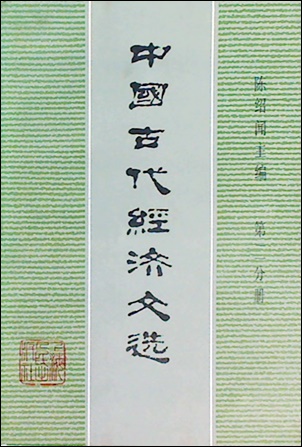 中國古代經济文选
陈绍闻主编 第二分册